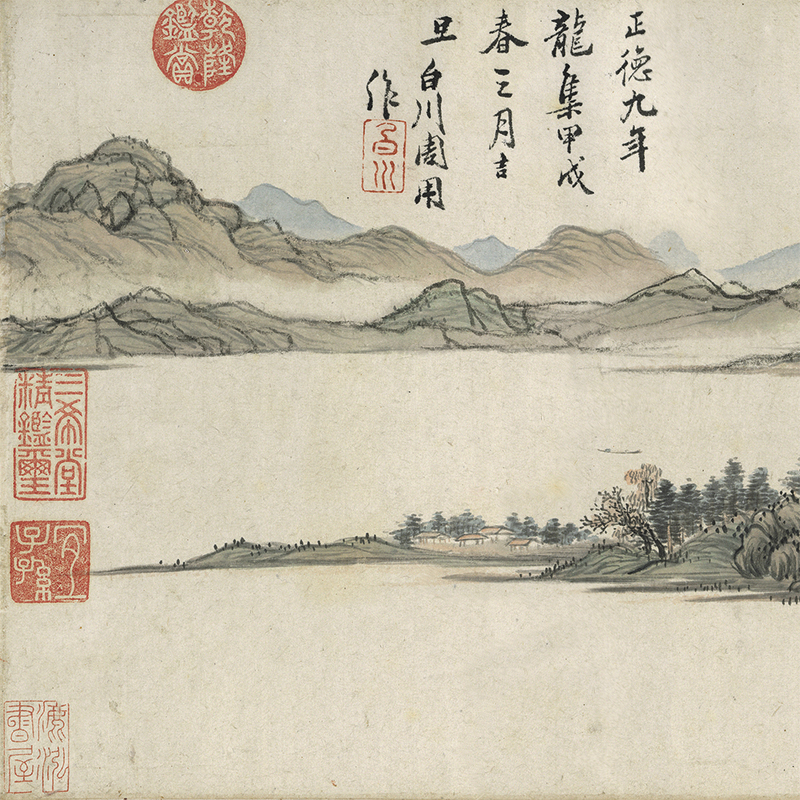 正德九年
龍集甲戌
春三月吉
旦白川周用
作
白川
乾隆
鑑賞
三希堂
精鑑璽
宜
子孫
書屋